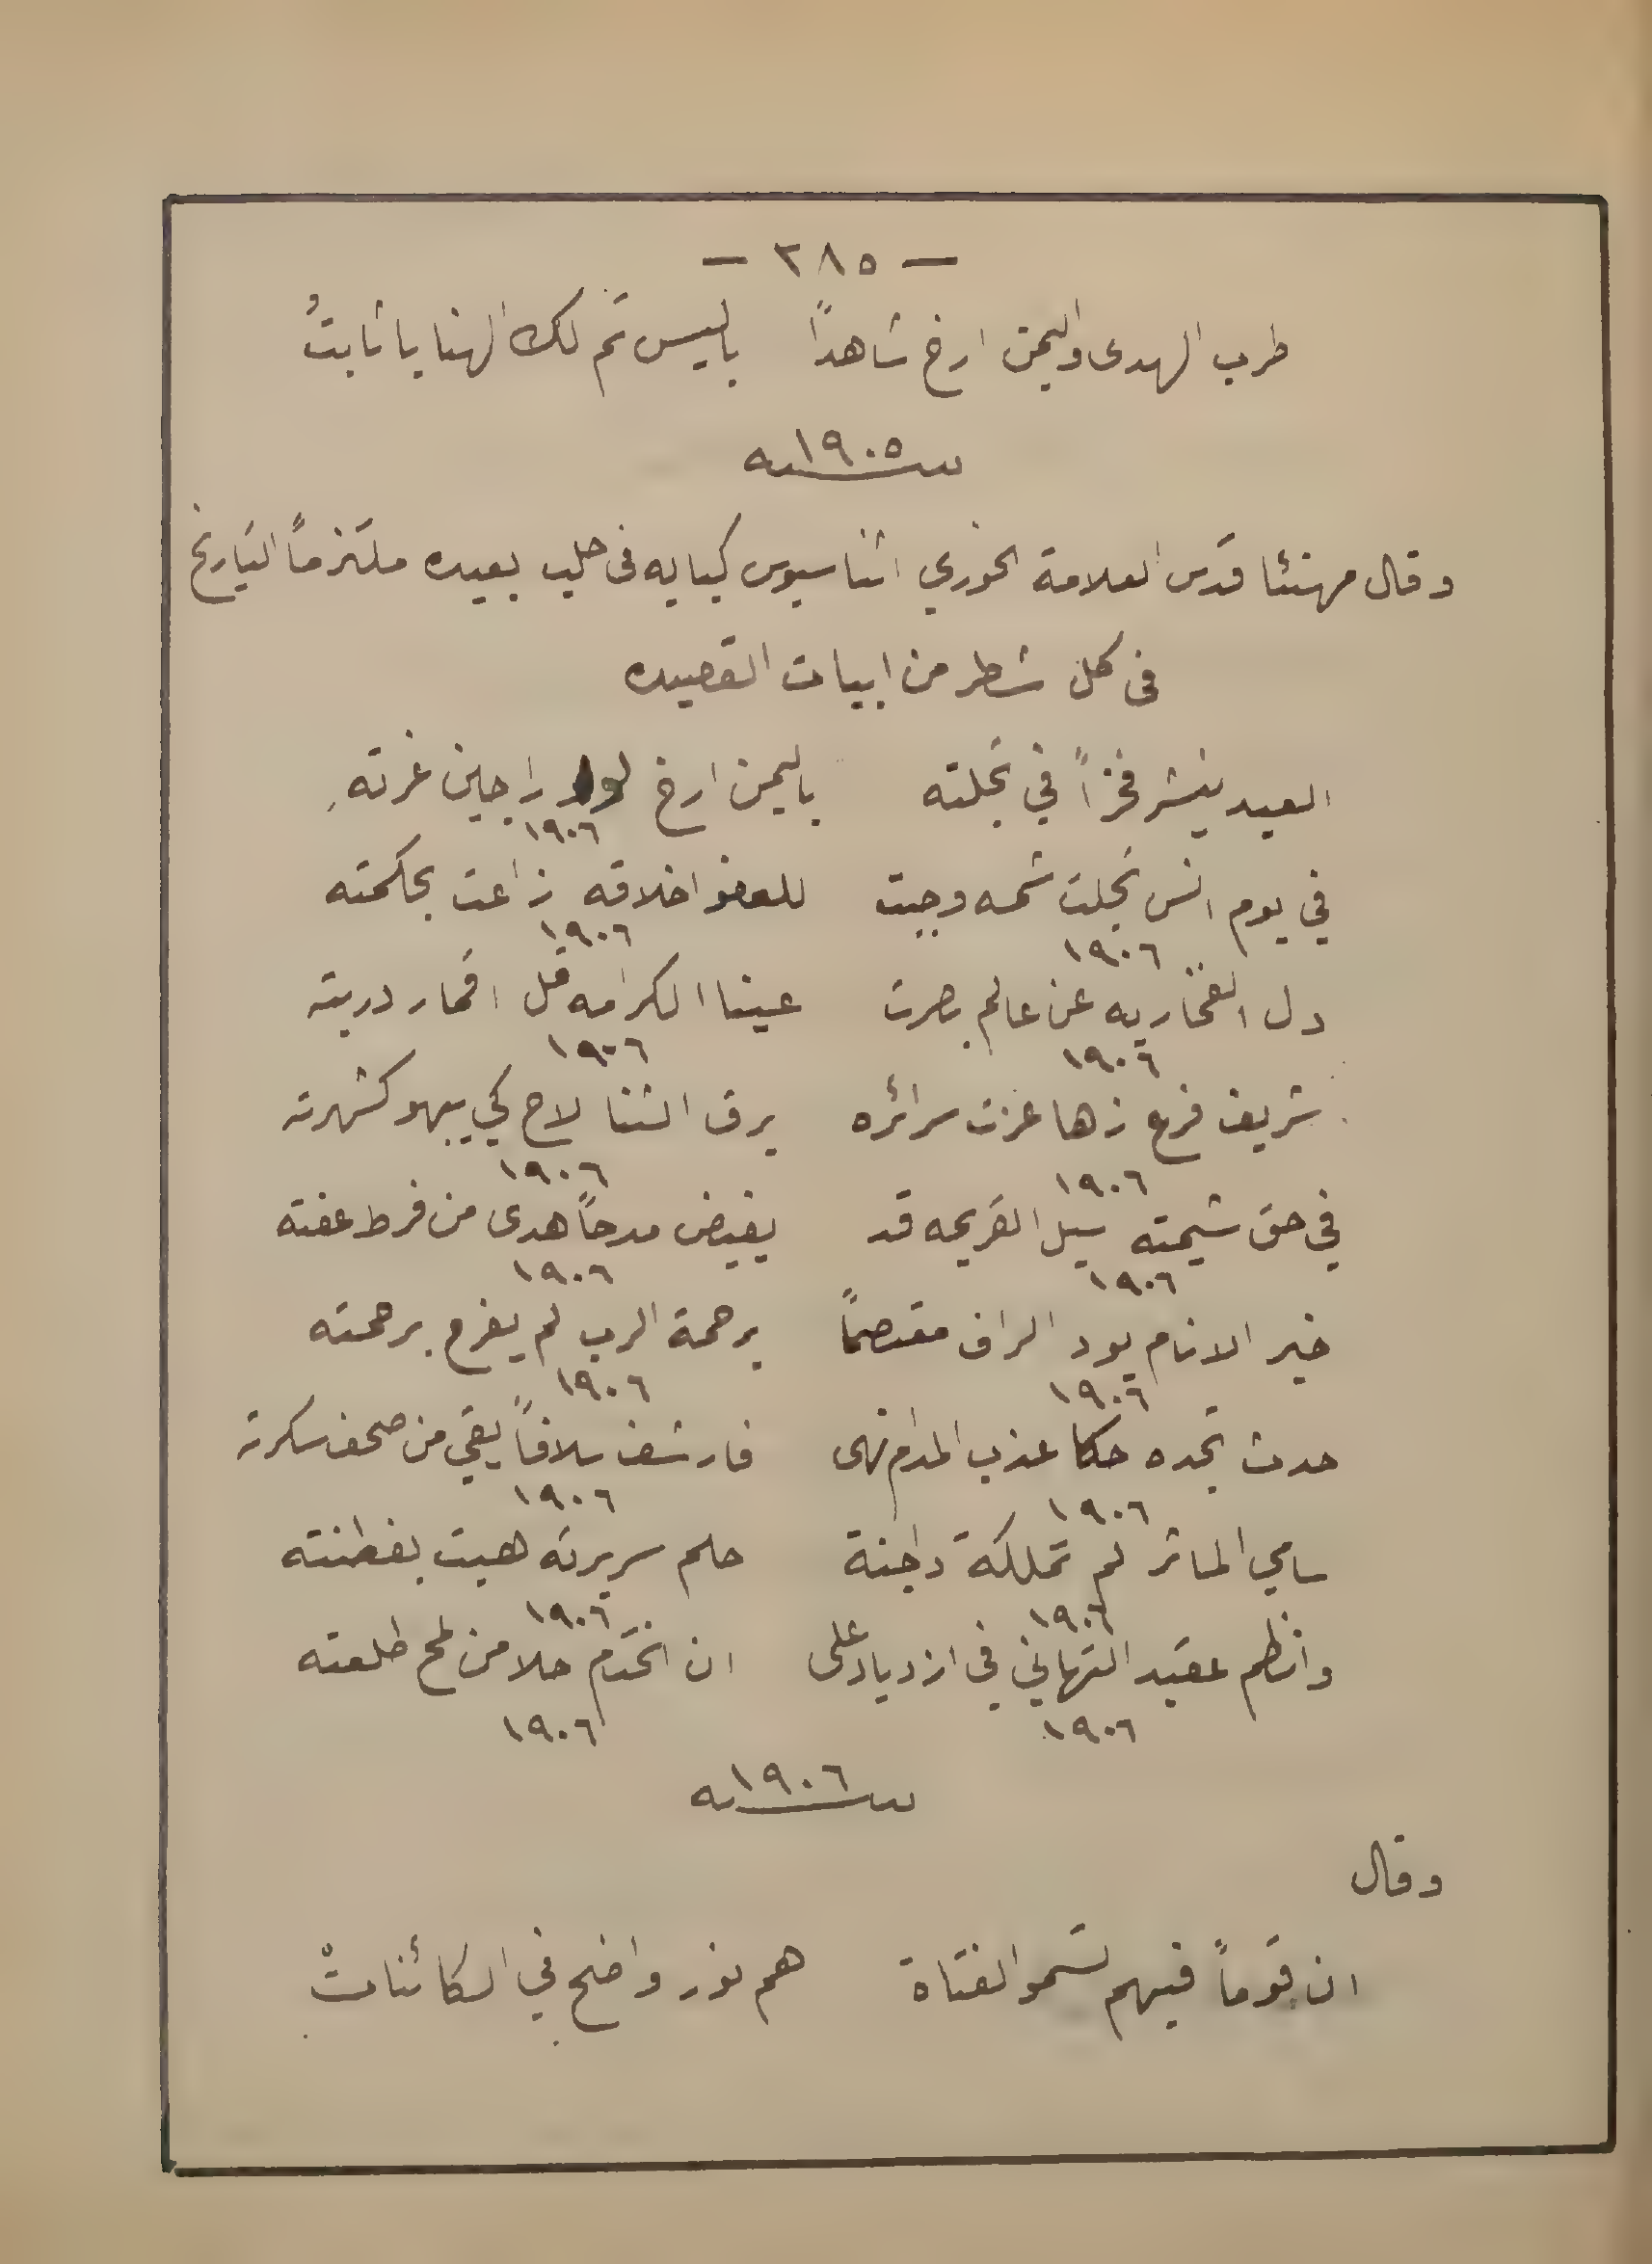 — ٢٨٥ —
طرب الهدى واليمن ارخ شاهداً باليسر تم لك الهنا يا ثابتُ
سنة ١٩٠٥
وقال مهنئا قدس العلامة الخوري اثناسيوس كبابه فى حلب بعيده ملتزماً التاريخ
فى كل شطر من ابيات القصيده
العيد ينشر فخراً في تجلته باليمن ارخ را جين غرتهِ
١٩٠٦
في يوم انس تجلت شمسه وجبت للعفو اخلاقه زاعت بحكمته
١٩٠٦ ١٩٠٦
دل الفخار به عن عالم بصرت عينا الكرامه قل اقمار دربته
١٩٠٦ ١٩٠٦
شريف فرع زها عزت سرائره برق الثنا لاح كي يبهو كشهرته
١٩٠٦ ١٩٠٦
في حق شيمته سيل القريحه قد يفيض مدحاً هدى من فرط عفته
١٩٠٦ ١٩٠٦
خير الانام يود الراف معتصماً برحمة الرب لم يفرح برحمته
١٩٠٦ ١٩٠٦
حدث تجده حكا عذب المدام نهى فارشف سلافاً يقي من صحف سكرته
١٩٠٦ ١٩٠٦
سامي المآثر لم تملكه داجنة حلم سريرته هيبت بفطنته
١٩٠٦ ١٩٠٦
وانظم عقيد التهاني في ازدياد على ان اختم حلا من لمح طلعته
١٩٠٦ ١٩٠٦
سنة ١٩٠٦
وقال
ان قوماً فيهم تسمو الفتاة هم نور واضح في الكائناتْ